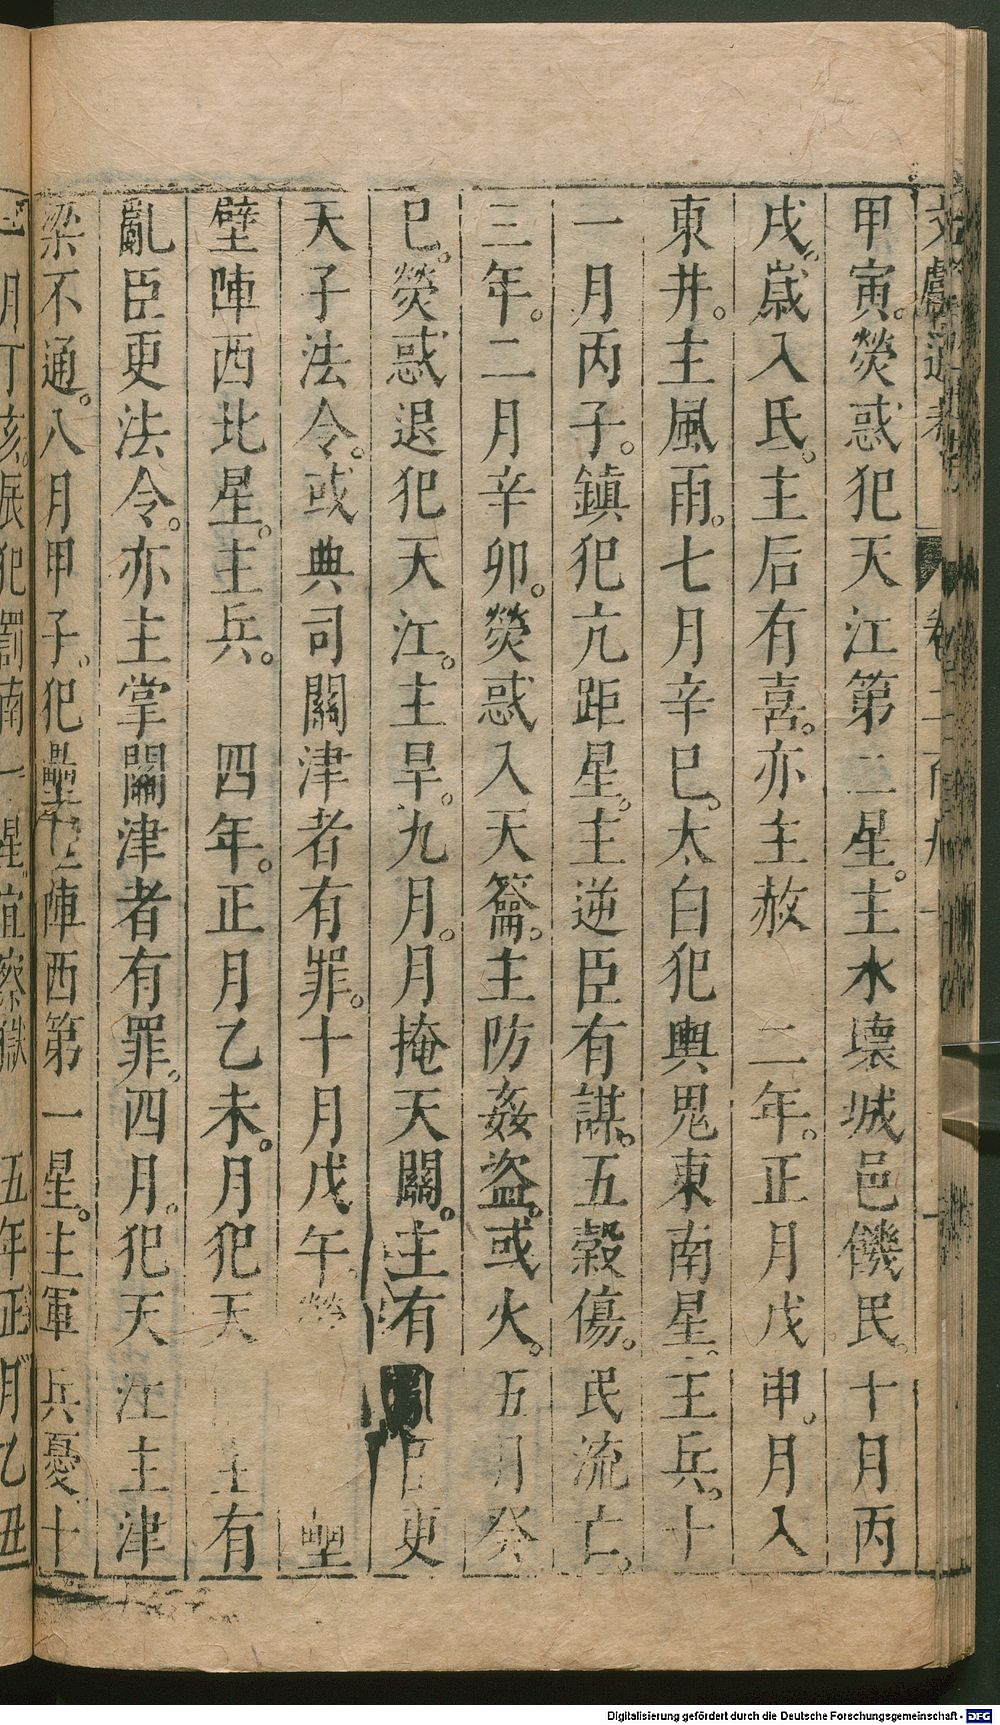 文獻通考
卷二百九十
甲寅。熒惑犯天江第二星。主水壞城邑饑民。十月丙
戌。歲入氐。主后有喜。亦主赦 二年。正月戊申。月入
東井。主風雨。七月辛巳。太白犯輿鬼東南星。主兵。十
一月丙子。鎮犯亢距星。主逆臣有謀。五穀傷。民流亡。
三年。二月辛卯。熒惑入天籥。主防姦盜。或火。五月癸
巳。熒惑退犯天江。主旱。九月。月掩天關。主有亂臣更
天子法令。或典司關津者有罪。十月戊午。熒 壘
壁陣西北星。主兵。 四年。正月乙未。月犯天 主有
亂臣更法令。亦主掌關津者有罪。四月。犯天江主津
梁不通。八月甲子。犯壘壁陣西第一星。主軍兵憂。十
一月丁亥。辰犯罰南一星宜察獄 五年正月乙丑
Digitalisierung gefördert durch die Deutsche Forschungsgemeinschaft - DFG